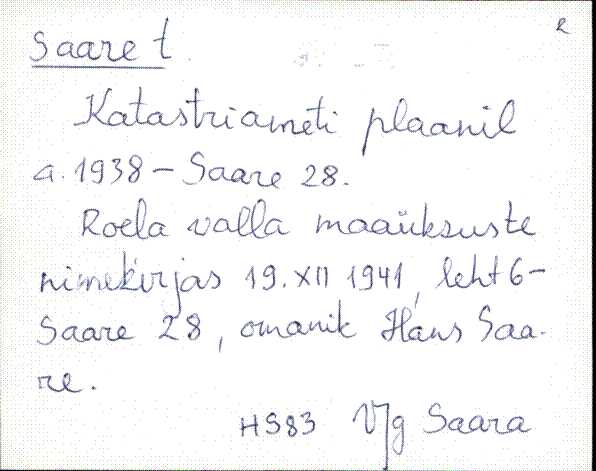 R
Saare t.
Katastriameti plaanil
a. 1938 – Saare 28.
Roela valla maaüksuste
nimekirjas 19. XII 1941, leht 6 –
Saare 28, omanik Hans Saa-
re.
HS83 V/g Saara